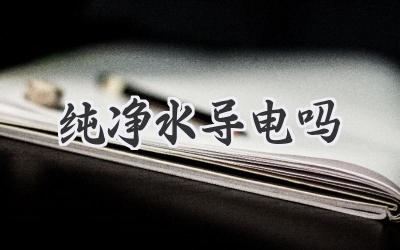 纯净水导电吗